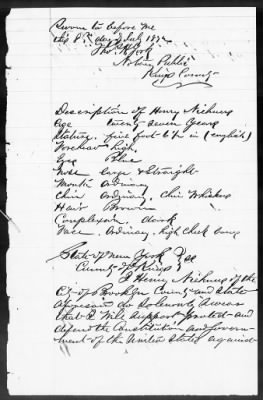 Sworn to before me
this 8th day of July 1874
Notary Public
Kings County
Description of Henry Niehues
Age twenty seven Years
Stature, five foot 6 in (english)
Forehead high,
Eyes Blue
Nose Large & Straight
Mouth Ordinary
Chin Ordinary, Chin Whiskers
Hair Brown
Complexion, dark
Face, Ordinary, high Cheek bones
State of New York
County of Kings
I Henry Niehues of the
City of Brooklyn County and State
aforesaid do Solemnly Swear
that I Will Support protect and
defend the Constitution and Govern-
ment of the United States against